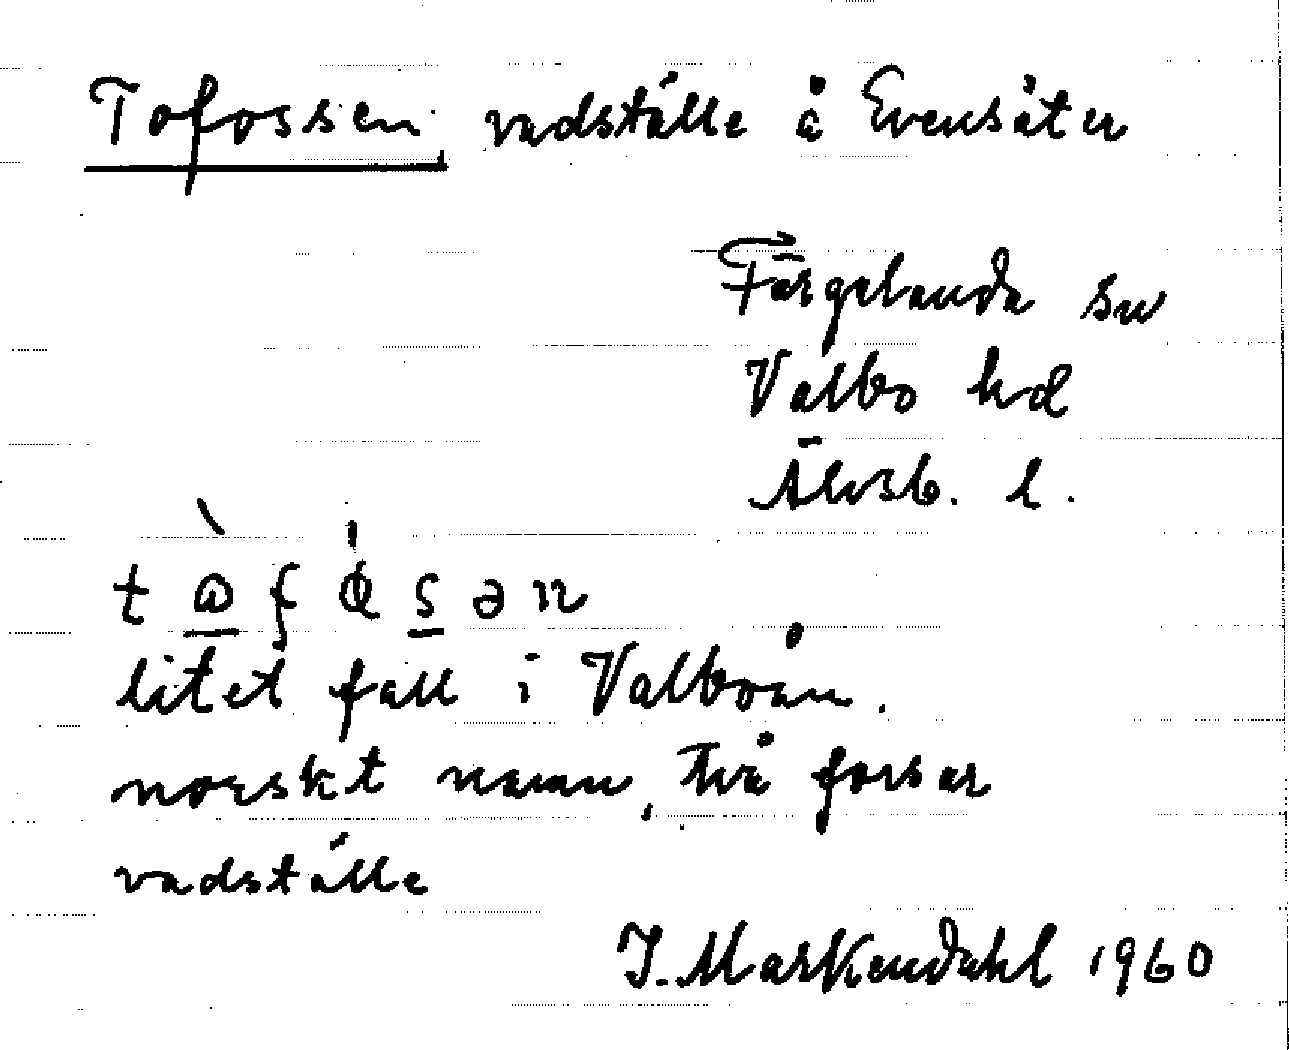 Tofossen vadställe å Evensäter
Färgelanda sn
Valbo hd
Älvsb. l.
litet fall i Valboån.
norskt namn, två forsar
vadställe
J. Markendahl 1960